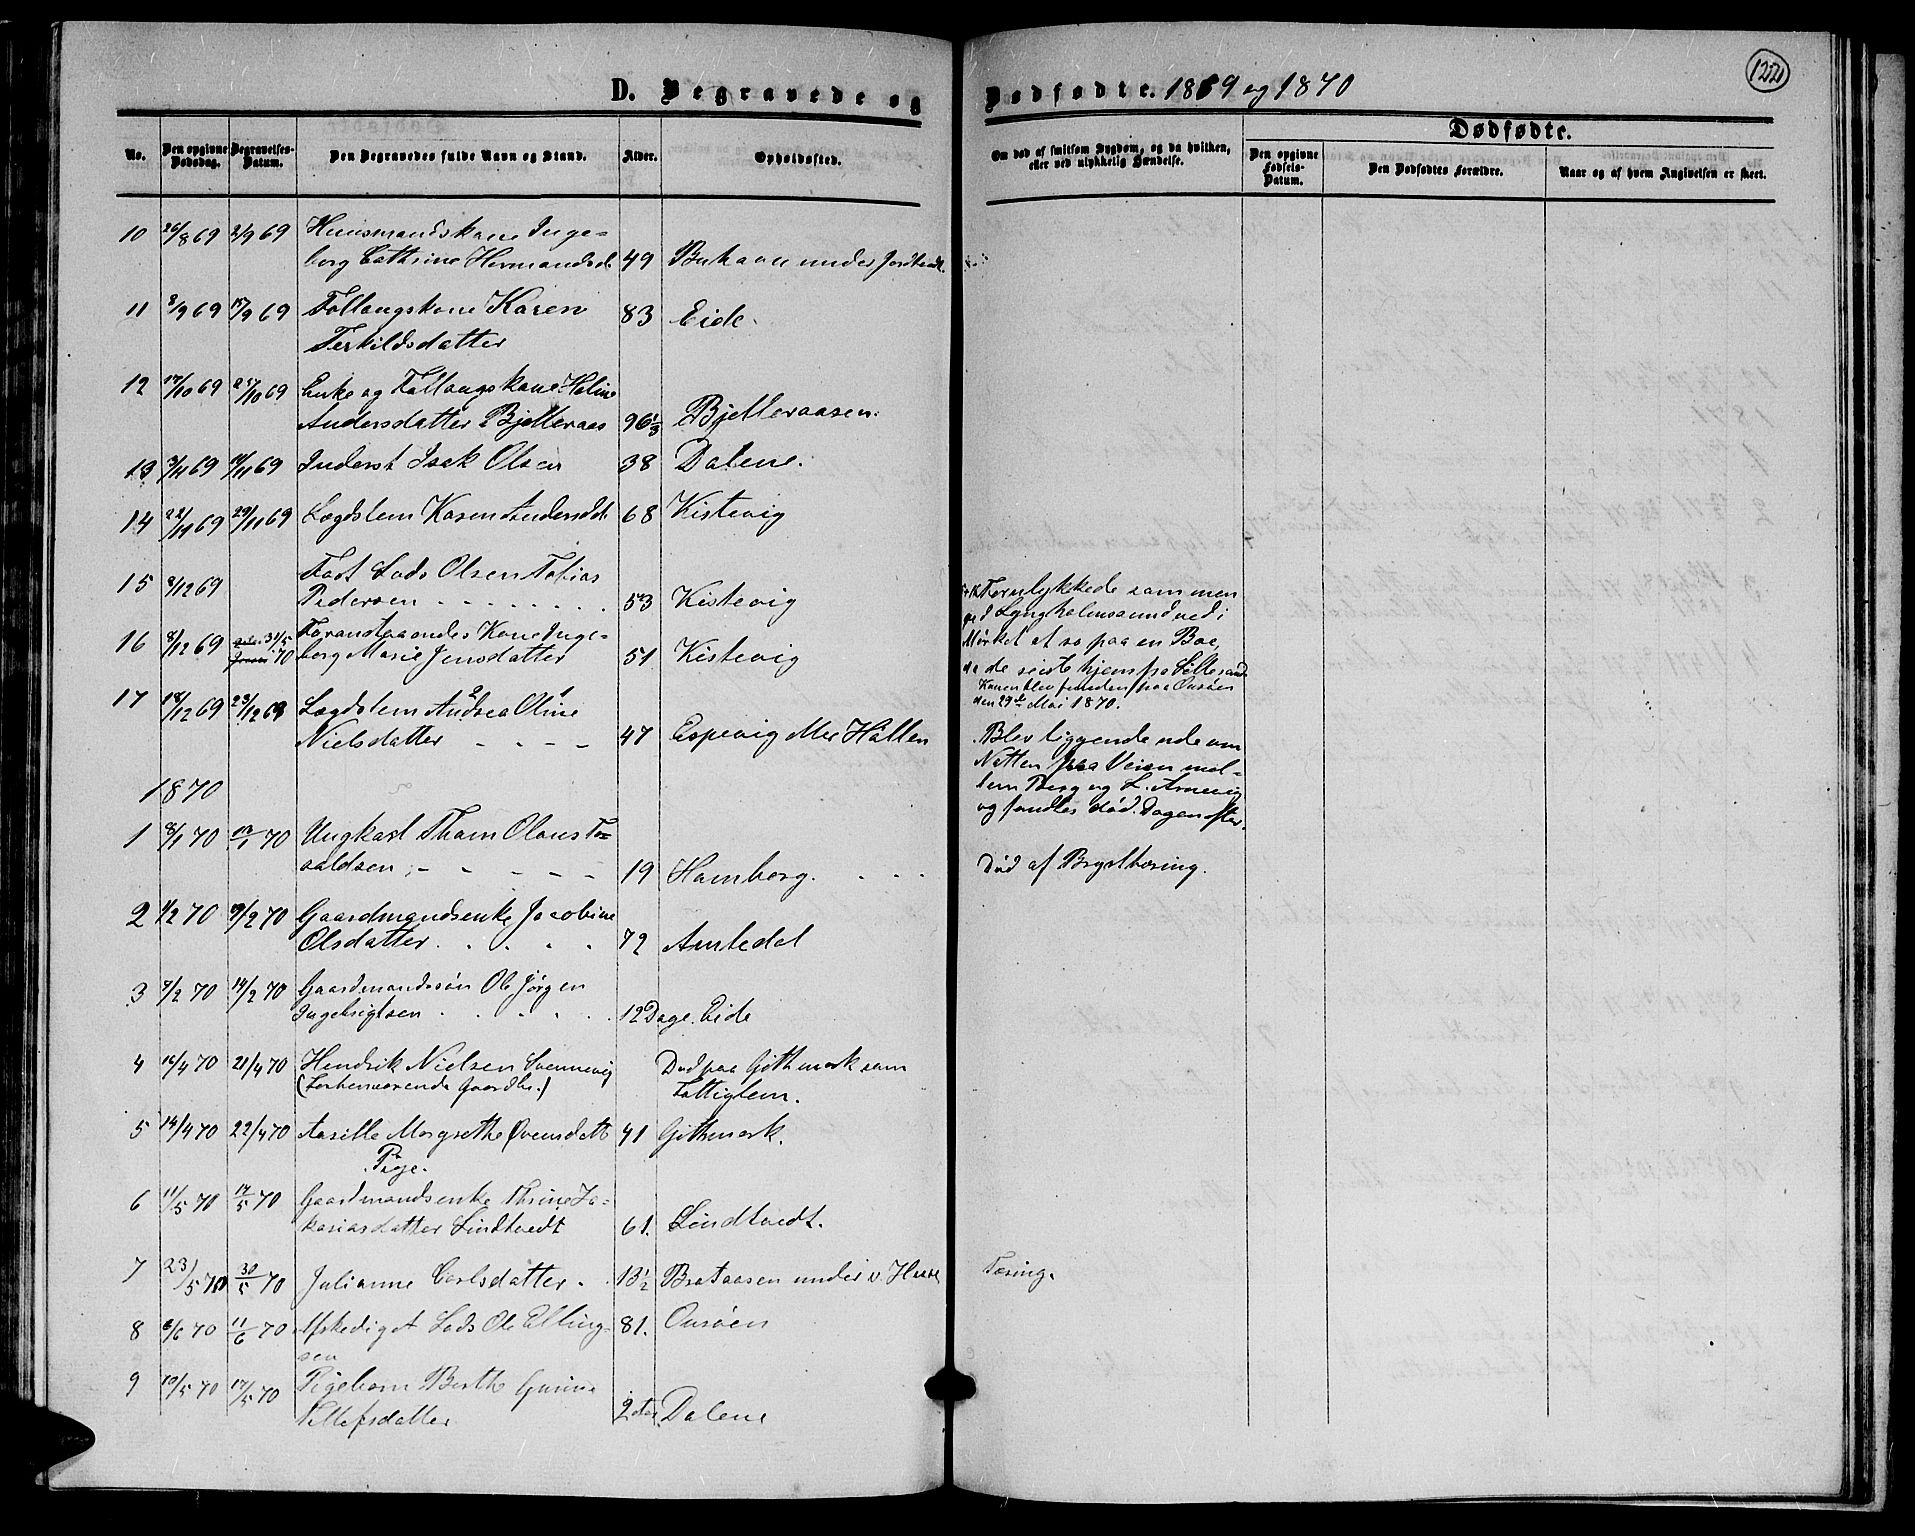 122
D. Begravede og Dødfødte. 1869 og 1870
Dødfødte.
No.
Den opgivne Dødsdag.
Begravelses-Datum.
Den Begravedes fulde Navn og Stand.
Alder.
Opholdssted.
Om død af smitsom Sygdom, og da hvilken, eller ved ulykkelig Hændelse.
Den opgivne Fødsels-Datum.
Den Dødfødtes Forældre.
Naar og af hvem Angivelsen er skeet.
10 26/8 69 2/9 69 Huusmandskone Inge-
borg Cathrine Hermandsd. 49 Buhaven under Jordtvedt.
11 8/9 69 15/9 69 Føllaugskone Karen 83 Eide.
Terkildsdatter
12 17/10 69 25/10 69 Enke og Føllaugskone Heline
Andersdatter Bjelleraas 96 1/3 Bjelleraasen.
13 3/11 69 11/11 69 Inderst Isak Olsen 38 Dalene.
14 22/11 69 29/11 69 Lægdslem Karen Andersdt. 68 Kistevig
15 8/12 69 Fast Lods Olsen Tobias
Pedersen 53 Kistevig
16 8/12 69 31/5 70 Foranstaaendes Kone Inge-
borg Marie Jensdatter 51 Kistevig
Forulykkede sammen
ved Lyngholmsund ved i
Mørket at so paa en Boe,
da de seilte hjem fra Lillesand
Konen blev funden paa Ousøen
den 29de Mai 1870.
17 18/12 69 23/12 69 Lægdslem Andrea Oline
Nielsdatter 47 Espevig Mee Hallen
Blev liggende ude om
Natten paa Veien mel-
lem Berg og L. Arnevig
og fandtes død Dagen efter.
1870
1 8/1 70 13/1 70 Ungkarl Tham Olaus To-
raldsen 19 Hamberg. Død af Brysttæring.
2 1/2 70 9/2 70 Gaardmandsenke Jacobine
Olsdatter 72 Amtedal
3 7/2 70 14/2 70 Gaardmandssøn Ole Jørgen
Ingebrigtsen 12 Dage. Eide
4 16/4 70 21/4 70 Hendrik Nielsen Svennevig Død paa Githmark som
(forhenværende Gaardbr.) Fattiglem.
5 14/4 70 22/4 70 Aasille Margrethe Svensdatt 41 Githmark.
Pige.
6 11/5 70 17/5 70 Gaardmandsenke Thrine Za-
kariasdatter Lindtvedt 61. Lindtvedt.
7 23/5 70 30/5 70 Julianne Carlsdatter. 13 1/2 Brataasen under v. Hæse Tæring.
8 6/6 70 11/6 70 Afskediget Lods Ole Elling- 81. Ousøen
sen
9 10/5 70 17/5 70 Pigebarn Berthe Gurine
Tellefsdatter 2 Dalene